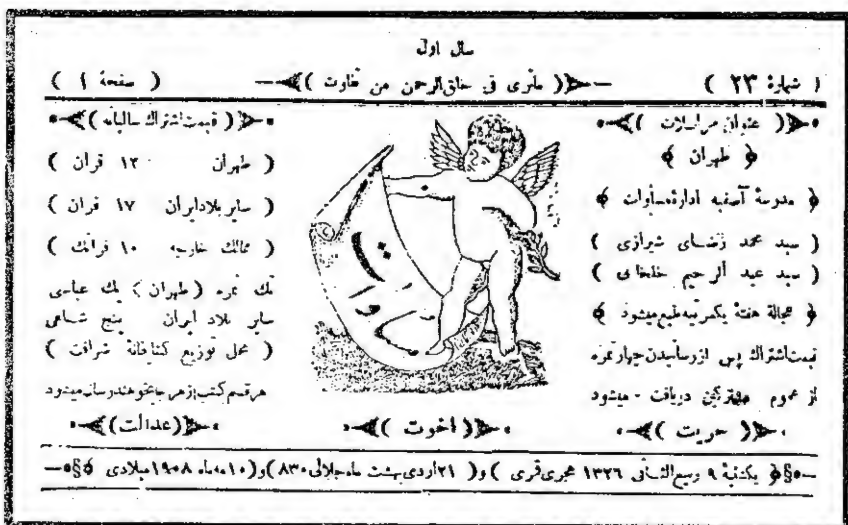 سال اول
( شمارهٔ ۲۳ )
( ماتری فی خلق‌الرحمن من تفاوت )
( صفحهٔ ۱ )
( عنوان مراسلات )
﴿ طهران ﴾
﴿ مدرسهٔ آصفیه ادارهٔ مساوات ﴾
( سید محمد رضای شیرازی )
( سید عبد الرحیم خلخالی )
﴿ عجالة هفتهٔ یکمرتبه طبع میشود ﴾
قیمت اشتراك پس از رسانیدن چهار نمره
از عموم مشترکین دریافت - میشود
( حریت )
مساوات
( اخوت )
( قیمت اشتراك سالیانه )
( طهران ۱۲ قران )
( سایر بلاد ایران ۱۷ قران )
( ممالك خارجه ۱۰ فرانك )
تك نمره ( طهران ) یك عباسی
سایر بلاد ایران پنج شاهی
( محل توزیع کتابخانهٔ شرافت )
هر قسم کتب از هر جا بخوهند رسانه میشود
( عدالت )
یکشنبهٔ ۹ ربیع الثانی ۱۳۲۶ هجری قمری ) و( ۲۱ اردی بهشت ماه جلالی ۸۳۰ ) و( ۱۰ مه ماه ۱۹۰۸ میلادی